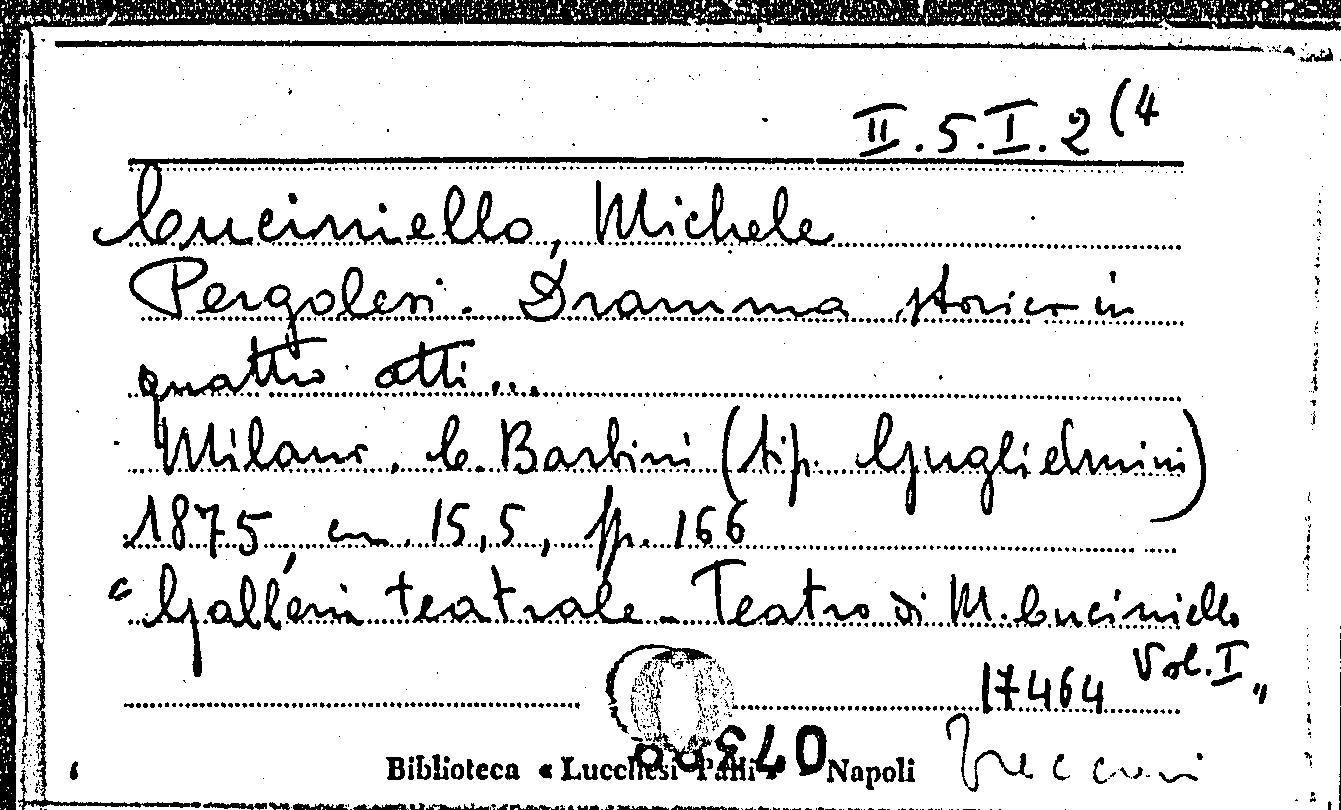 II.5.I.2(4
Cuciniello, Michele
Pergolesi. Dramma storico in
quattro atti...
Milano, C. Barbini (tip. Guglielmini)
1875, cm. 15,5, pp. 166
"Galleria teatrale - Teatro di M. Cuciniello
Vol. I"
17464
Biblioteca « Lucchesi Palli » Napoli